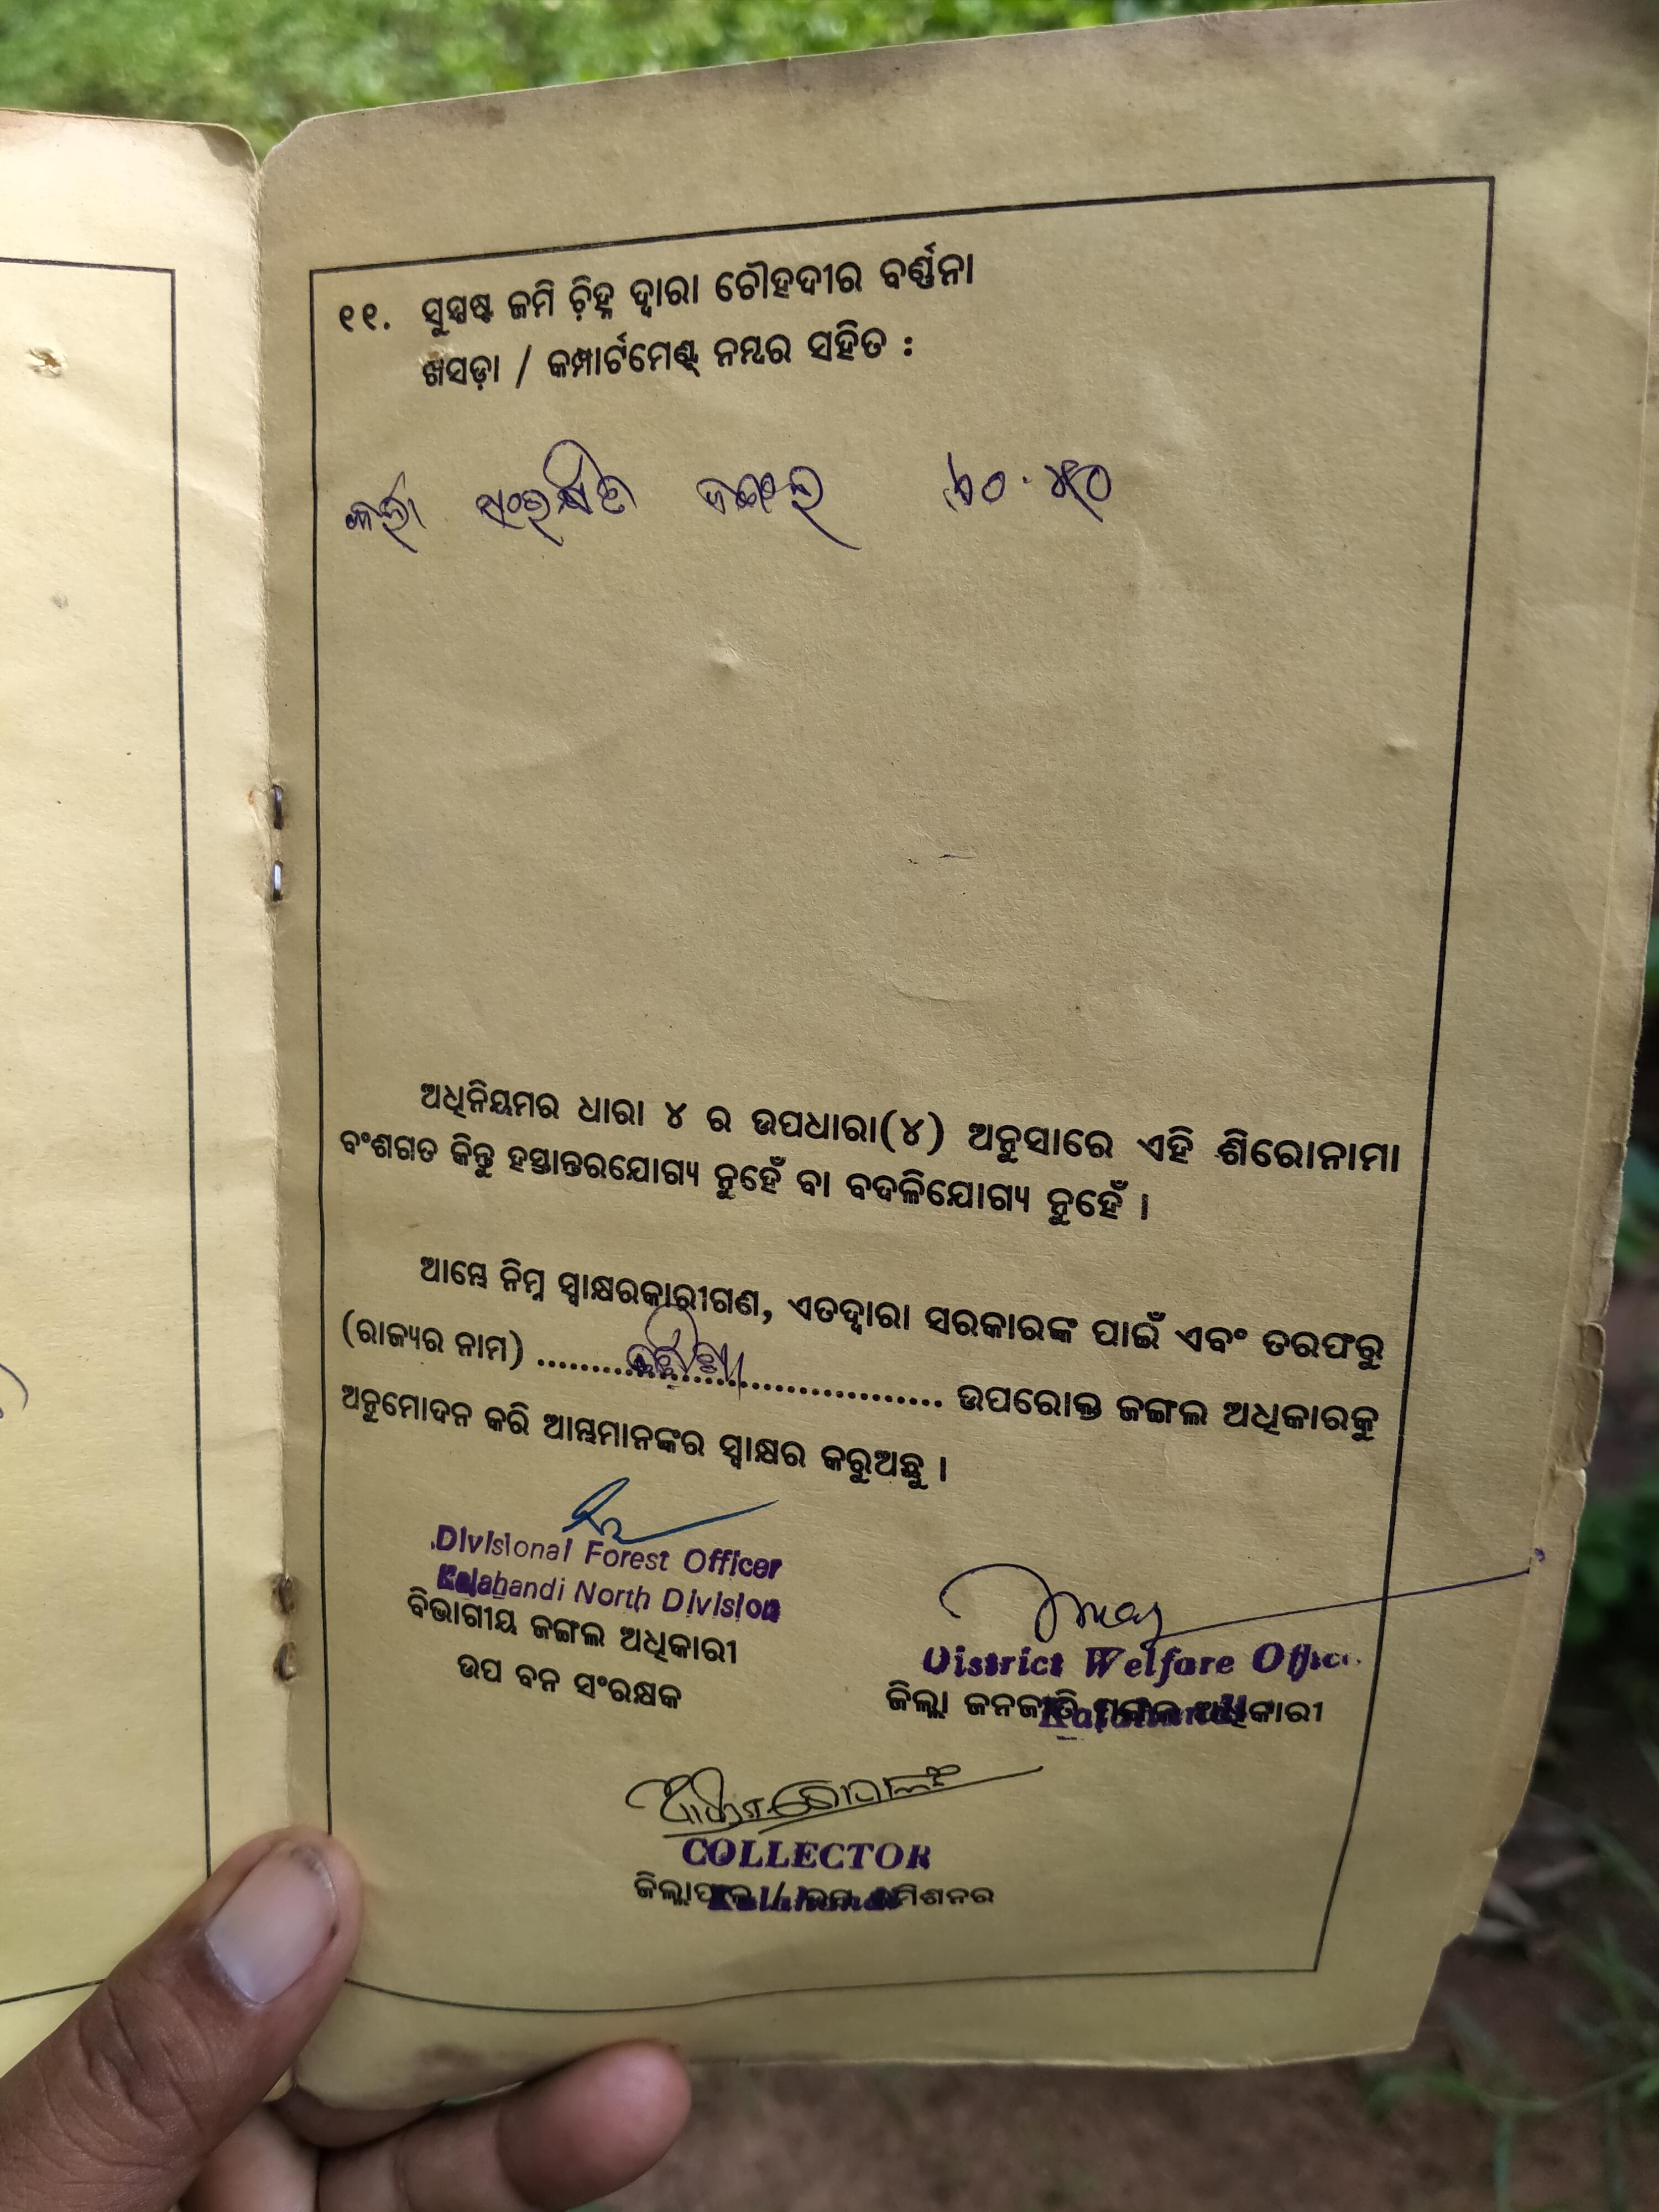 ୧୧. ସୁସ୍ପଷ୍ଟ ଜମି ଚ଼ିହ୍ନ ଦ୍ୱାରା ଚୌହଦୀର ବର୍ଣ୍ଣନା
ଖସଡ଼ା / କମ୍ପାର୍ଟମେଣ୍ଟ୍ ନମ୍ବର ସହିତ :
ସଂରକ୍ଷିତ ଜଙ୍ଗଲ
ଅଧିନିୟମର ଧାରା ୪ ର ଉପଧାରା(୪) ଅନୁସାରେ ଏହି ଶିରୋନାମା
ବଂଶଗତ କିନ୍ତୁ ହସ୍ତାନ୍ତରଯୋଗ୍ୟ ନୁହେଁ ବା ବଦଳିଯୋଗ୍ୟ ନୁହେଁ ।
ଆମ୍ଭେ ନିମ୍ନ ସ୍ୱାକ୍ଷରକାରୀଗଣ, ଏତଦ୍ୱାରା ସରକାରଙ୍କ ପାଇଁ ଏବଂ ତରଫରୁ
(ରାଜ୍ୟର ନାମ) ........ ଓଡ଼ିଶା ................ ଉପରୋକ୍ତ ଜଙ୍ଗଲ ଅଧିକାରକୁ
ଅନୁମୋଦନ କରି ଆମ୍ଭମାନଙ୍କର ସ୍ୱାକ୍ଷର କରୁଅଛୁ ।
Divisional Forest Officer
Kalahandi North Division
ବିଭାଗୀୟ ଜଙ୍ଗଲ ଅଧିକାରୀ
ଉପ ବନ ସଂରକ୍ଷକ
District Welfare Office
ଜିଲ୍ଲା ଜନଜାତି ମଙ୍ଗଳ ଅଧିକାରୀ
Kalahandi
COLLECTOR
ଜିଲ୍ଲାପାଳ / ଉପ କମିଶନର
Kalahandi